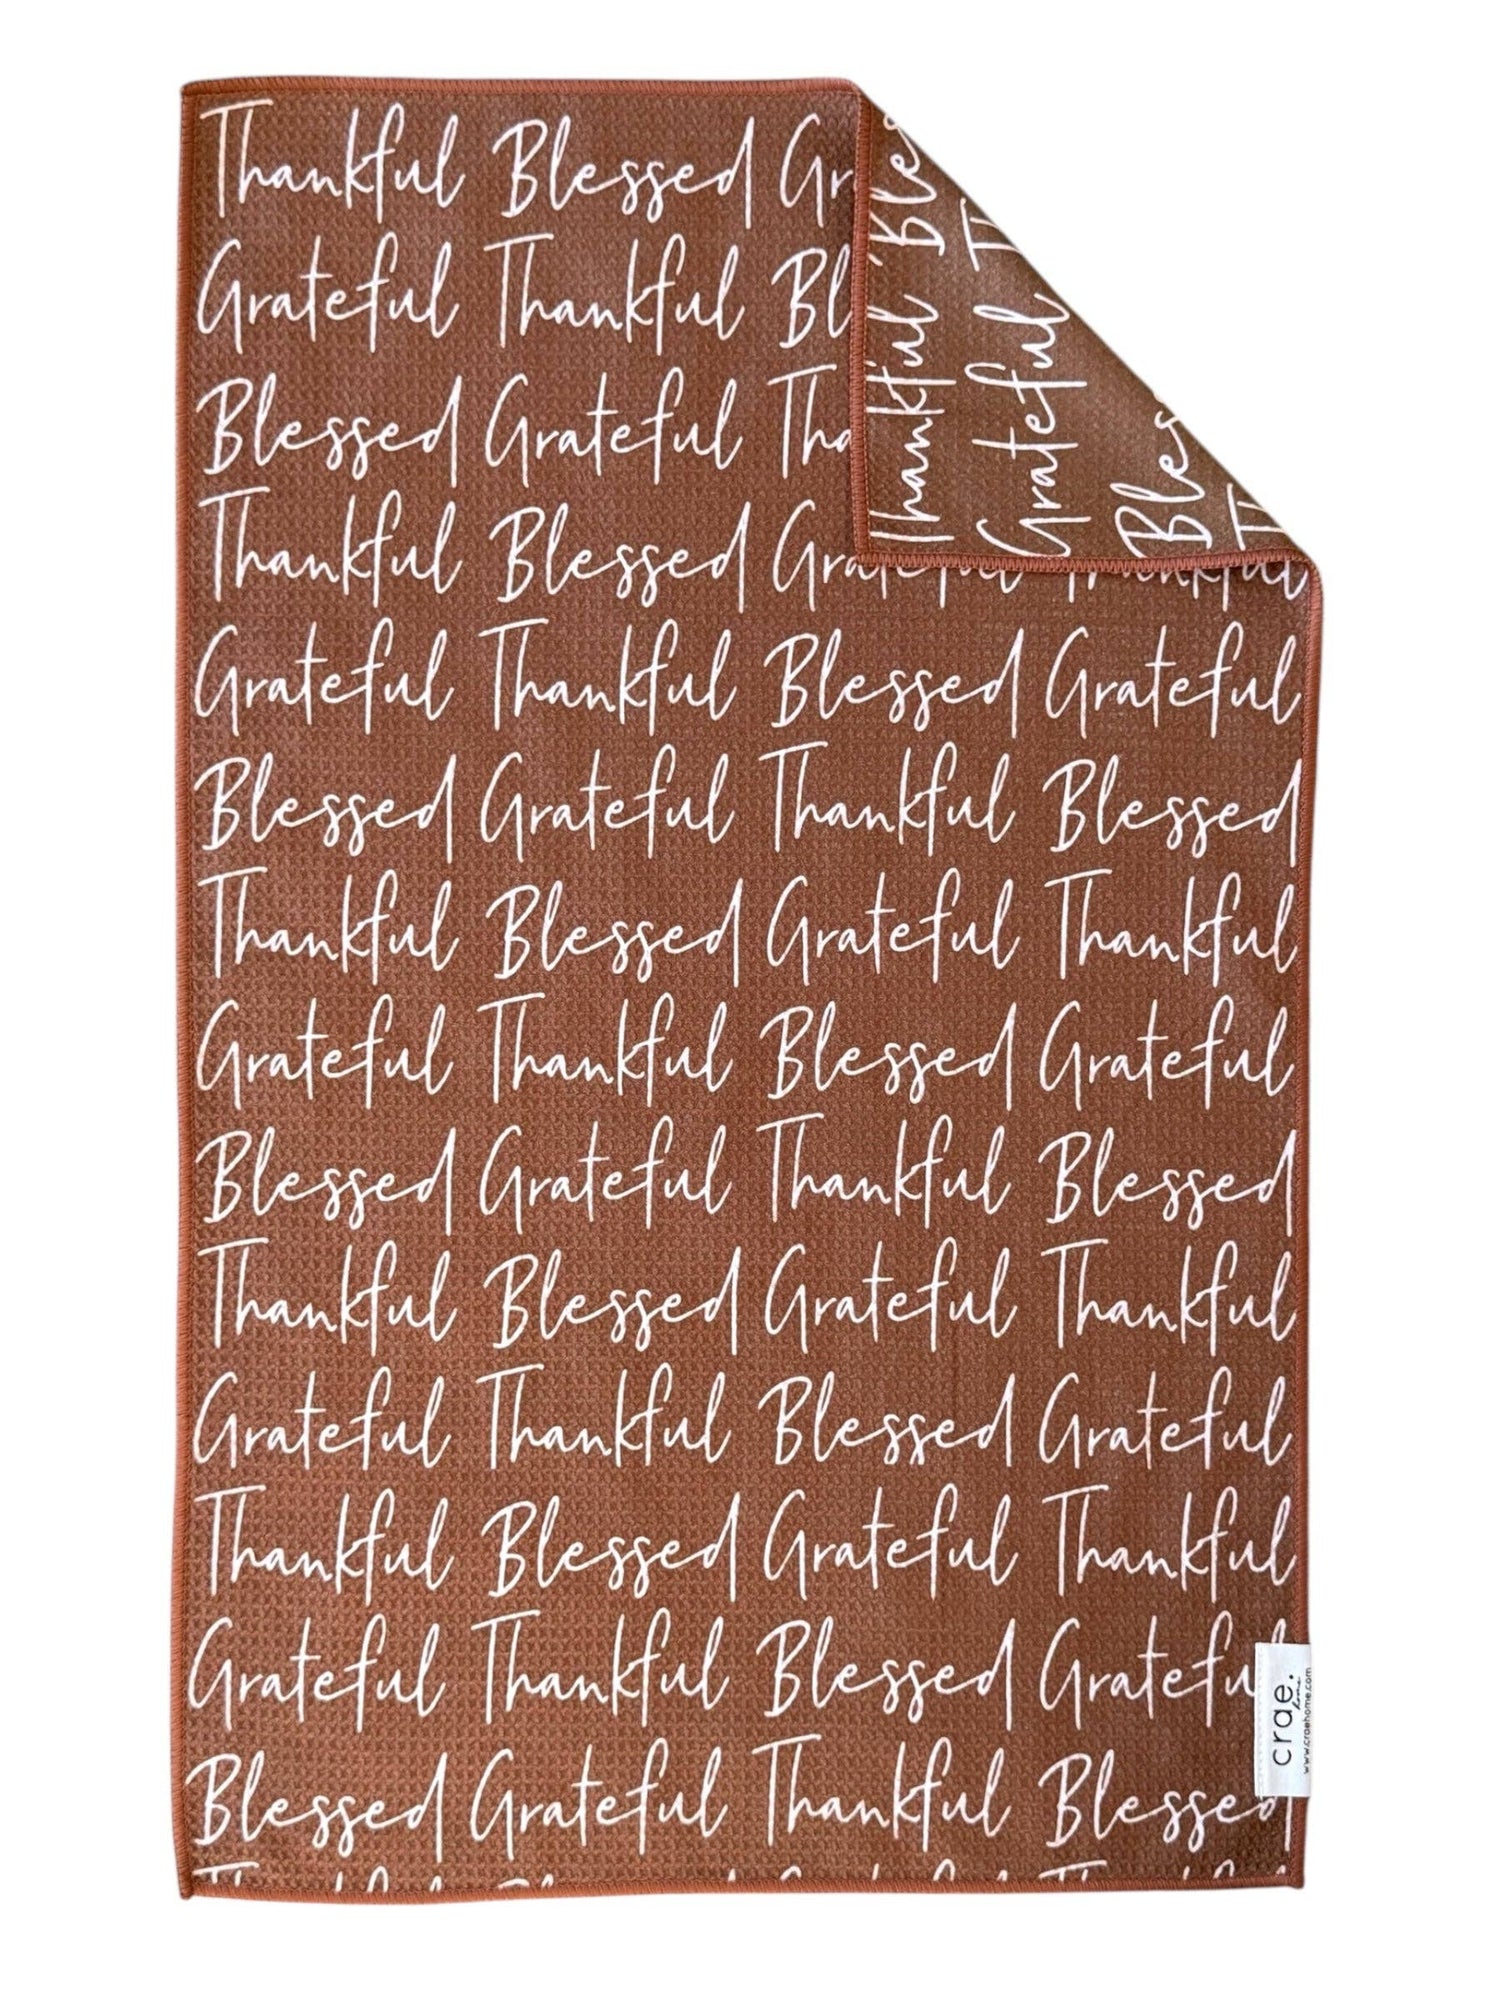 Thankful Blessed Gr
Grateful Thankful Bl
Blessed Grateful Tha
Thankful Blessed Grateful Thankful
Grateful Thankful Blessed Grateful
Blessed Grateful Thankful Blessed
Thankful Blessed Grateful Thankful
Grateful Thankful Blessed Grateful
Blessed Grateful Thankful Blessed
Thankful Blessed Grateful Thankful
Grateful Thankful Blessed Grateful
Thankful Blessed Grateful Thankful
Grateful Thankful Blessed Gratefu
Blessed Grateful Thankful Blessed
Thankful Bles
Grateful
Bles
crae.
home
www.craehome.com